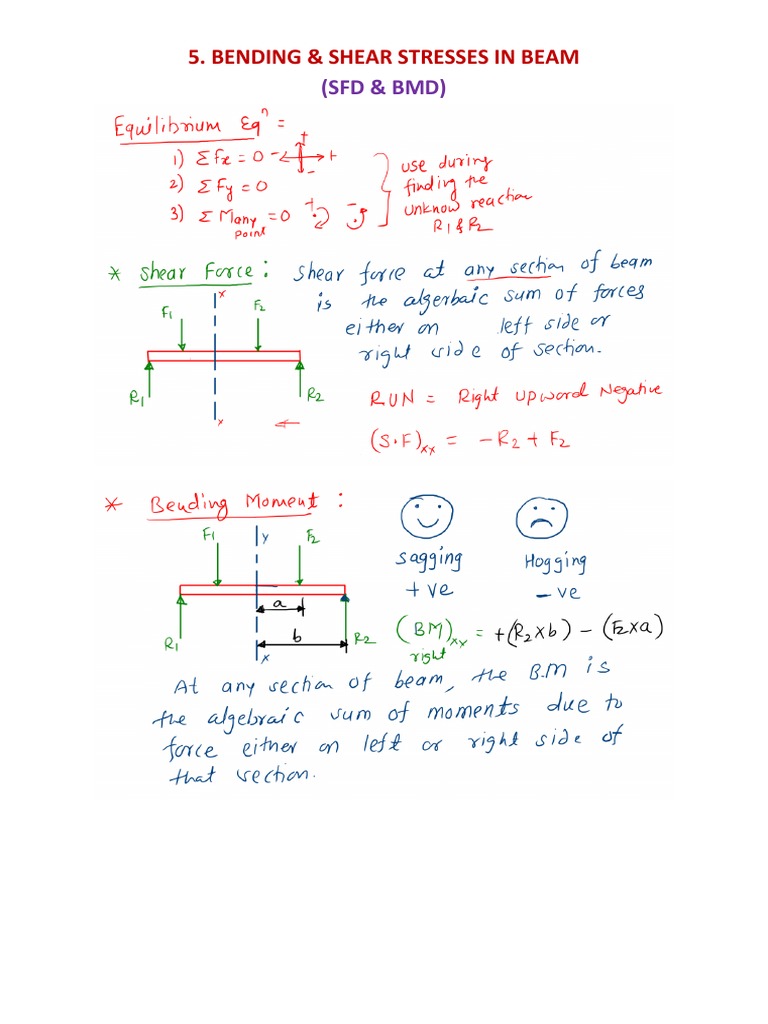 5. BENDING & SHEAR STRESSES IN BEAM
(SFD & BMD)
Equilibrium Eqⁿ =
1) ΣFx = 0 - + + -
2) ΣFy = 0
3) ΣM any point = 0 + -
use during
finding the
unknow reaction
R1 & R2
* Shear Force : Shear force at any section of beam
is the algerbaic sum of forces
either on left side or
right side of section.
x
F1 F2
R1 R2
x
RUN = Right Upword Negative
(S.F)xx = -R2 + F2
* Bending Moment :
Sagging Hogging
+ve -ve
F1 y F2
a
b
R1 R2
x
(BM)xx = +(R2 x b) - (F2 x a)
right
At any section of beam, the B.M is
the algebraic sum of moments due to
force either on left or right side of
that section.